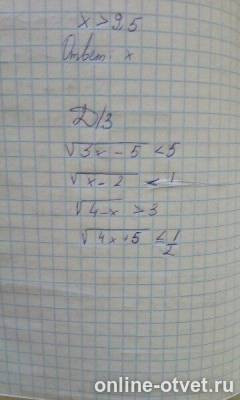 x > 2,5
Ответ: x
Д/З
√3x - 5 < 5
√x - 2 < 1
√4 - x > 3
√4x + 5 ≤ 1/2
online-otvet.ru